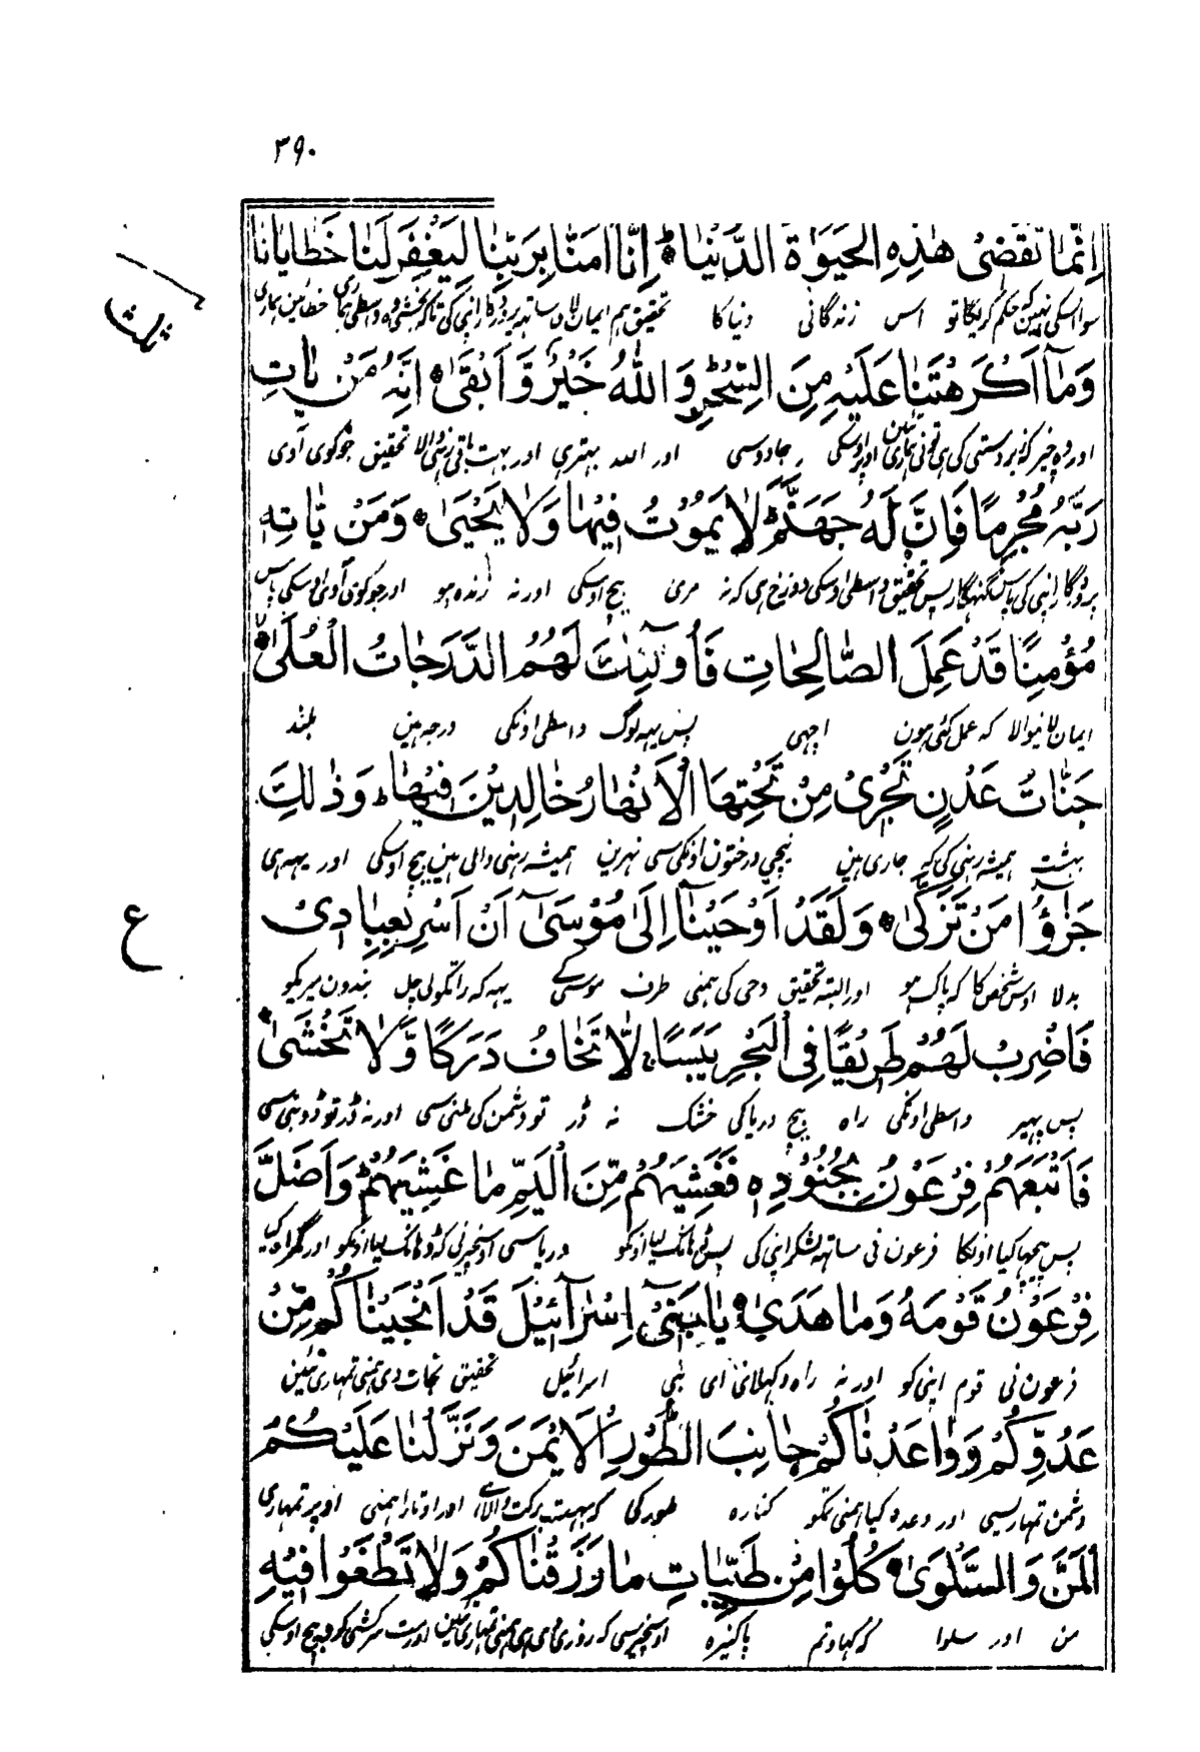 ٣٩٠
اِنَّمَا تَقْضِىْ هٰذِهِ الْحَيٰوةَ الدُّنْيَا ۗ اِنَّا اٰمَنَّا بِرَبِّنَا لِيَغْفِرَ لَنَا خَطَايَانَا
سوا اسکی نہین کہ حکم کریگا تو اس زندگانی دنیا کا تحقیق ہم ایمان لای ساتہہ پروردگار اپنی کی تاکہ بخشی وہ واسطی ہماری خطائین ہماری
ثلث
وَمَآ اَكْرَهْتَنَا عَلَيْهِ مِنَ السِّحْرِ وَاللّٰهُ خَيْرٌ وَّاَبْقٰى اِنَّهٗ مَنْ يَّاتِ
اور وہ چیز کہ زبردستی کی ہی تونی ہماری تئین اوپر اوسکی جادوسی اور اللہ بہتر ہی اور بہت باقی رہنی والا تحقیق جو کوئی آوی
رَبَّهٗ مُجْرِمًا فَاِنَّ لَهٗ جَهَنَّمَ لَا يَمُوْتُ فِيْهَا وَلَا يَحْيٰى وَمَنْ يَّاتِهٖ
پروردگار اپنی کی پاس گنہگار پس تحقیق واسطی اوسکی دوزخ ہی کہ نہ مری بیچ اوسکی اور نہ زندہ ہو اور جو کوئی آوی اوسکی پاس
مُؤْمِنًا قَدْ عَمِلَ الصَّالِحَاتِ فَاُولٰٓئِكَ لَهُمُ الدَّرَجَاتُ الْعُلٰى
ایمان لانیوالا کہ عمل کئی ہون اچہی پس یہہ لوگ واسطی اونکی درجہ ہین بلند
جَنَّاتُ عَدْنٍ تَجْرِىْ مِنْ تَحْتِهَا الْاَنْهَارُ خَالِدِيْنَ فِيْهَا ۗ وَذٰلِكَ
بہشت ہمیشہ رہنی کی کہ جاری ہین نیچی درختون اونکی سی نہرین ہمیشہ رہنی والی ہین بیچ اوسکی اور یہہ ہی
جَزٰٓؤُا مَنْ تَزَكّٰى وَلَقَدْ اَوْحَيْنَآ اِلٰى مُوْسٰٓى اَنْ اَسْرِ بِعِبَادِىْ
ع
بدلا اوس شخص کا کہ پاک ہو اور البتہ تحقیق وحی کی ہمنی طرف موسی کے یہہ کہ راتکو لی چل بندون میریکو
فَاضْرِبْ لَهُمْ طَرِيْقًا فِى الْبَحْرِ يَبَسًا لَّا تَخَافُ دَرَكًا وَّلَا تَخْشٰى
پس واسطی اونکی راہ بیچ دریا کی خشک نہ ڈر تو دشمن کی ملنی سی اور نہ ڈر تو ڈوبنی سی
فَاَتْبَعَهُمْ فِرْعَوْنُ بِجُنُوْدِهٖ فَغَشِيَهُمْ مِّنَ الْيَمِّ مَا غَشِيَهُمْ ۗ وَاَضَلَّ
پس پیچہا کیا اونکا فرعون نی ساتہہ لشکر اپنی کی پس ڈہانک لیا اونکو دریا سی اوس چیز نی کہ ڈہانک لیا اونکو اور گمراہ کیا
فِرْعَوْنُ قَوْمَهٗ وَمَا هَدٰى يَا بَنِىْٓ اِسْرَآئِيْلَ قَدْ اَنْجَيْنَاكُمْ مِّنْ
فرعون نی قوم اپنی کو اور نہ راہ دکہلائی ای بنی اسرائیل تحقیق نجات دی ہمنی تمہاری تئین
عَدُوِّكُمْ وَوَاعَدْنَاكُمْ جَانِبَ الطُّوْرِ الْاَيْمَنَ وَنَزَّلْنَا عَلَيْكُمُ
دشمن تمہاری سی اور وعدہ کیا ہمنی تمکو کنارہ طور کی کہ بہت برکت والا ہی اور اوتارا ہمنی اوپر تمہاری
الْمَنَّ وَالسَّلْوٰى كُلُوْا مِنْ طَيِّبَاتِ مَا رَزَقْنَاكُمْ وَلَا تَطْغَوْا فِيْهِ
من اور سلوا کہ کہاؤ تم پاکیزہ اوس چیز سی کہ روزی دی ہی ہمنی تمہاری تئین اور مت سرکشی کرو بیچ اوسکی